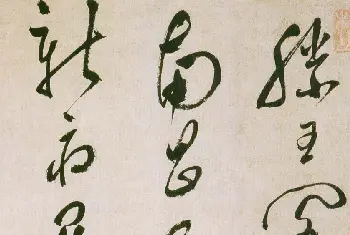 滕王閣
南昌
新府